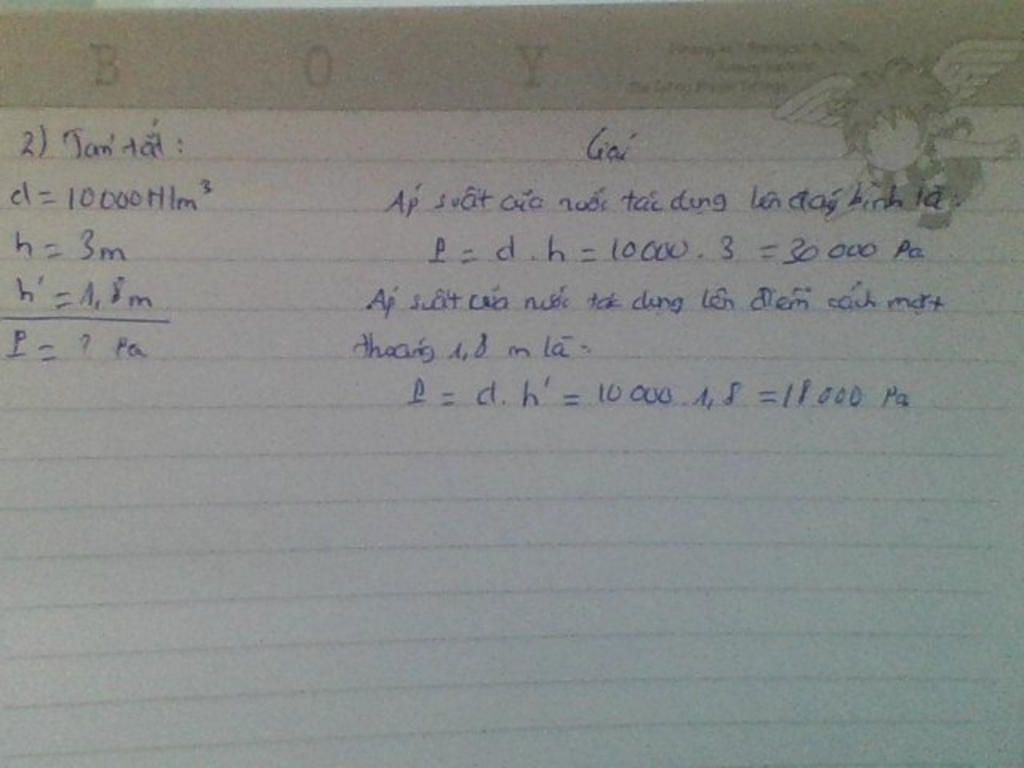 B O Y
2) Tóm tắt:
d = 10000N/m³
h = 3m
h' = 1,8m
P = ? Pa
Giải
Áp suất của nước tác dụng lên đáy bình là:
P = d . h = 10000 . 3 = 30 000 Pa
Áp suất của nước tác dụng lên điểm cách mặt
thoáng 1,8 m là:
P = d . h' = 10 000 . 1,8 = 18 000 Pa